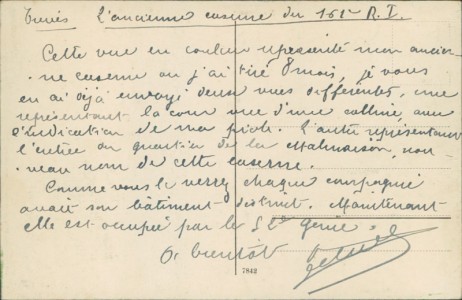 Trèves L'ancienne caserne du 161e R.I.
Cette vue en couleur représente mon ancien-
ne caserne où j'ai tiré 8 mois, je vous
en ai déjà envoyé deux vues différentes, une
représentant la cour vue d'une colline, avec
l'indication de ma piole. L'autre représentant
l'entrée du quartier de la Malmaison, nou-
veau nom de cette caserne.
Comme vous le verrez chaque compagnie
avait son bâtiment distinct. Maintenant
elle est occupée par le génie.
A bientôt
7842